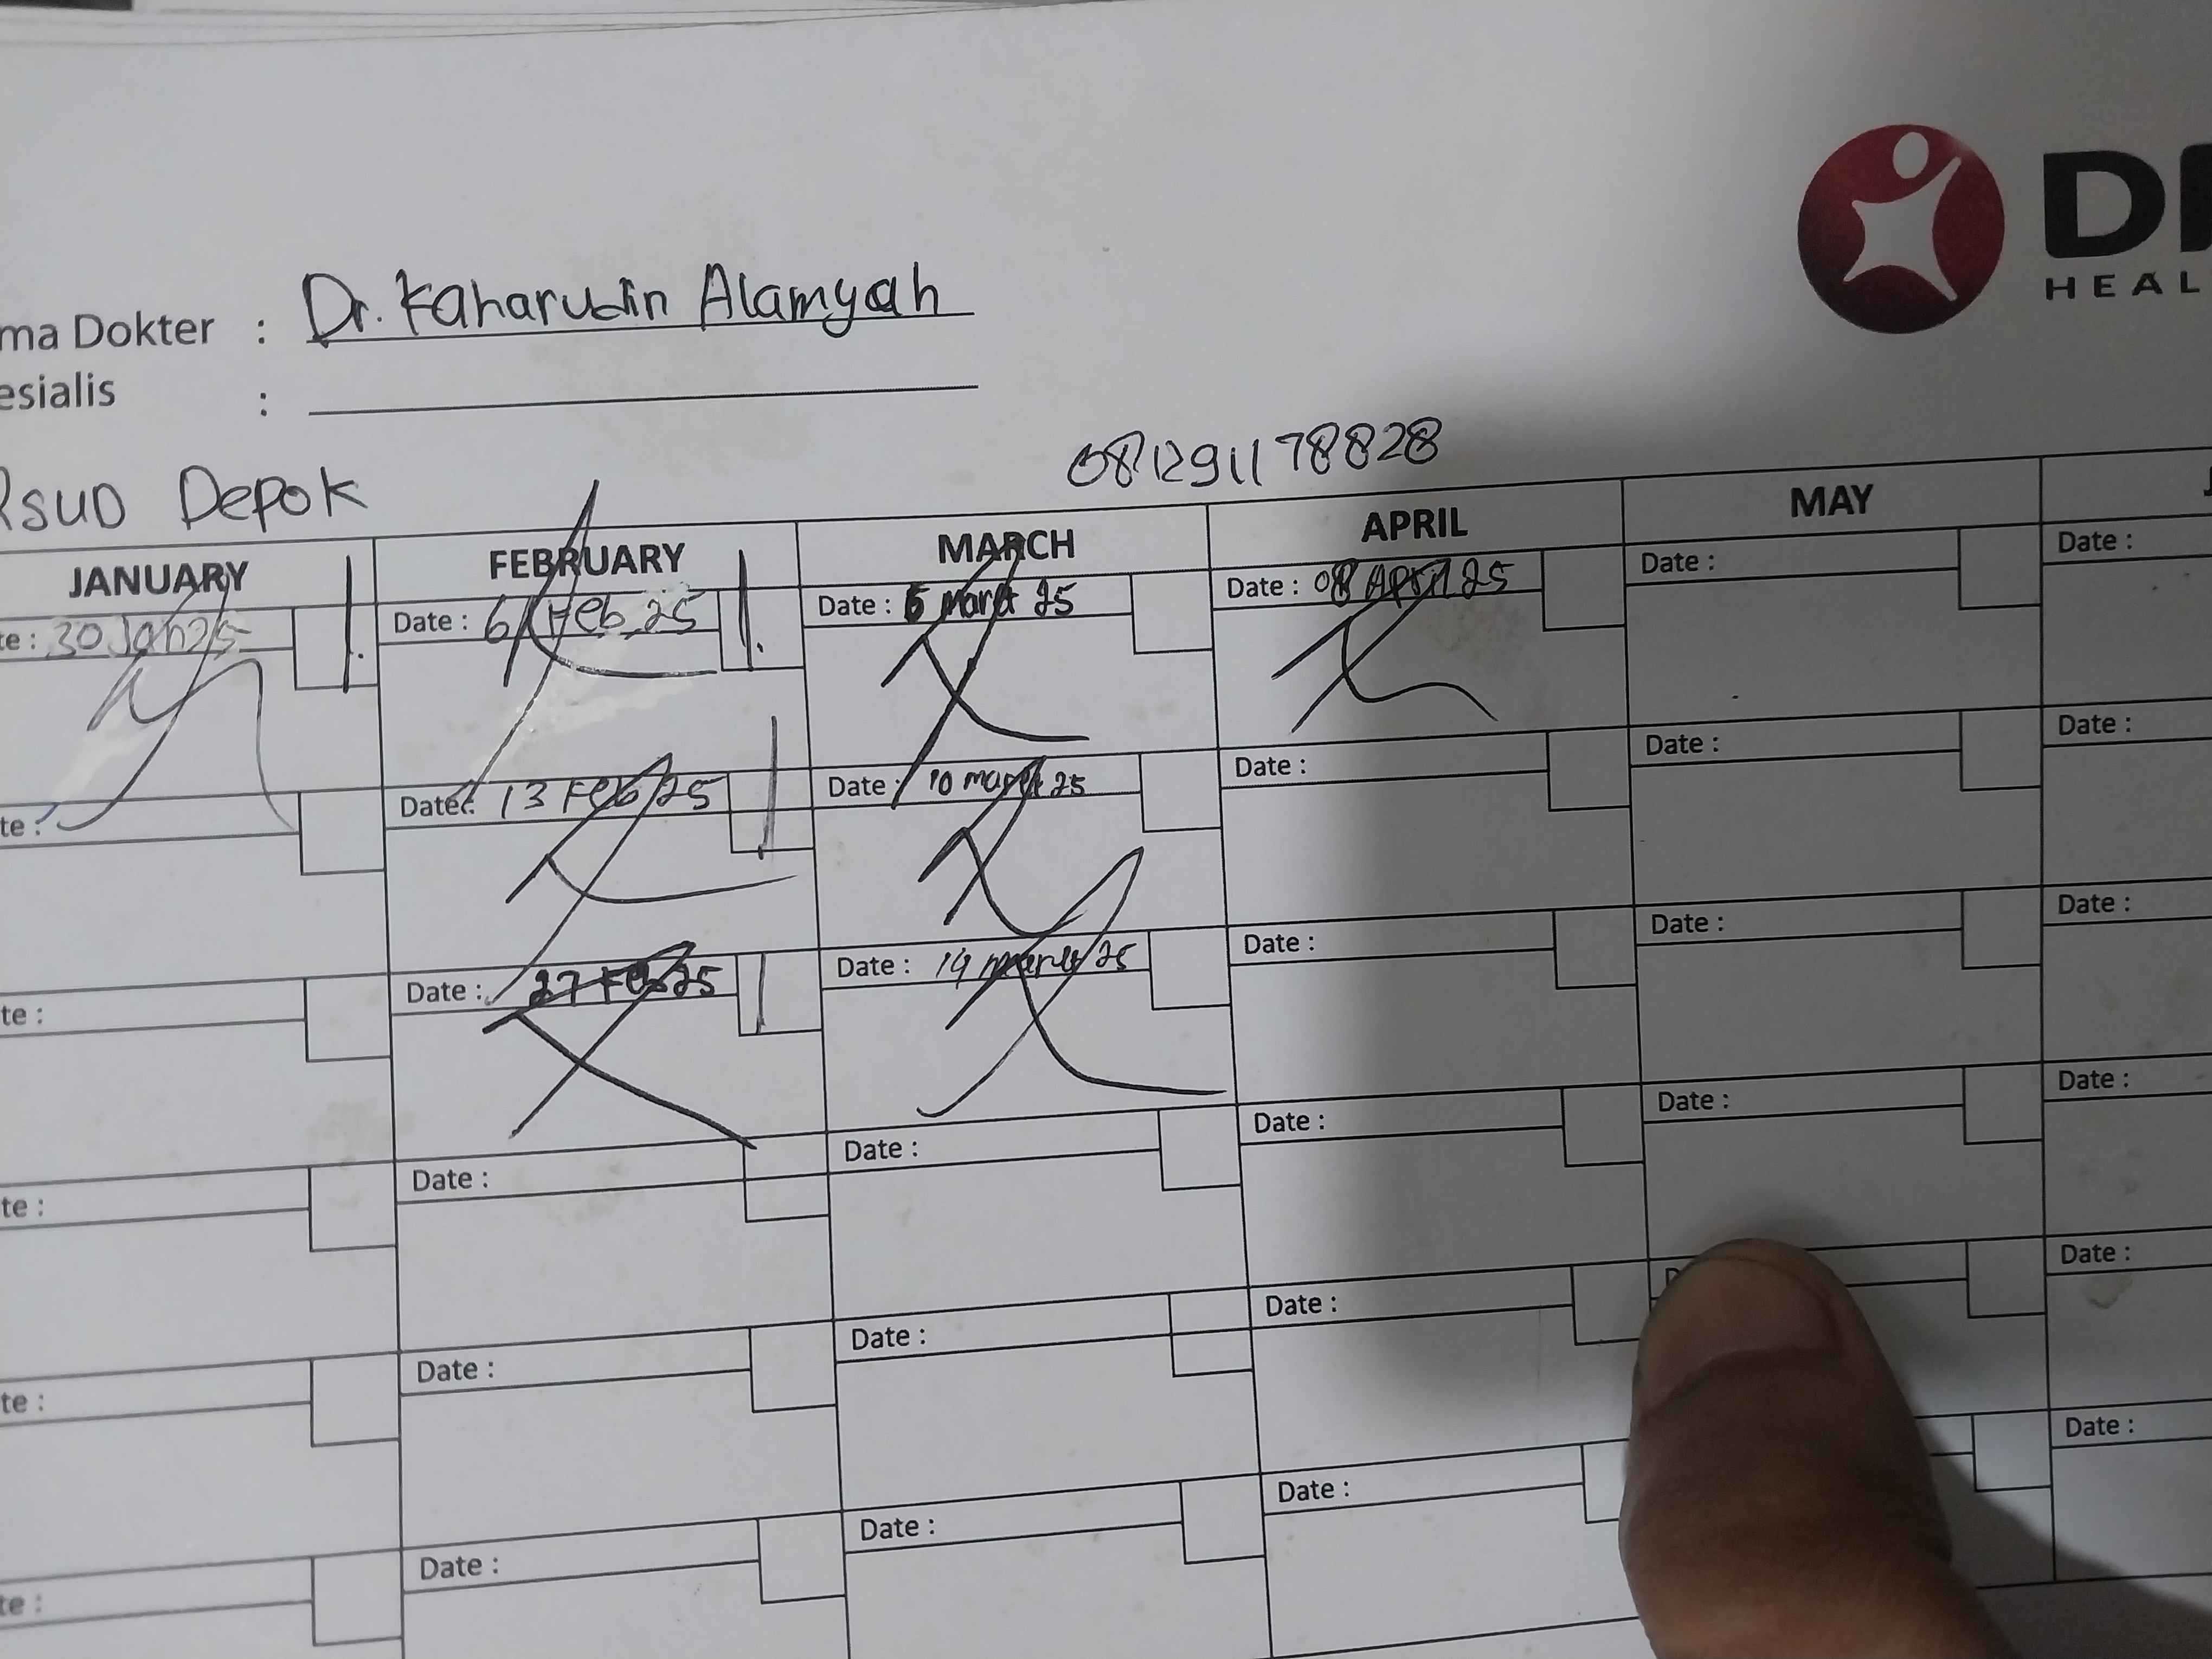 DI
HEAL
ma Dokter : Dr. Kaharudin Alamyah
esialis :
081291178828
RSUD Depok
JANUARY FEBRUARY MARCH APRIL MAY J
te : 30 Jan 25 1. Date : 6 Feb 25 1. Date : 5 Maret 25 Date : 08 April 25 Date : Date :
te : Date : 13 Feb 25 1 Date : 10 maret 25 Date : Date : Date :
te : Date : 27 Feb 25 1 Date : 19 maret 25 Date : Date : Date :
te : Date : Date : Date : Date : Date :
te : Date : Date : Date : D Date :
te : Date : Date : Date : Date :